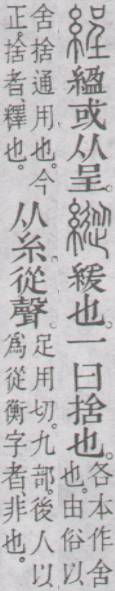 緼或从呈。縱緩也。一曰捨也。
各本作舍
也。由俗以
舍捨通用也。今
正。捨者、釋也。
从糸。從聲。
足用切。九部。後人以
爲從衡字者、非也。